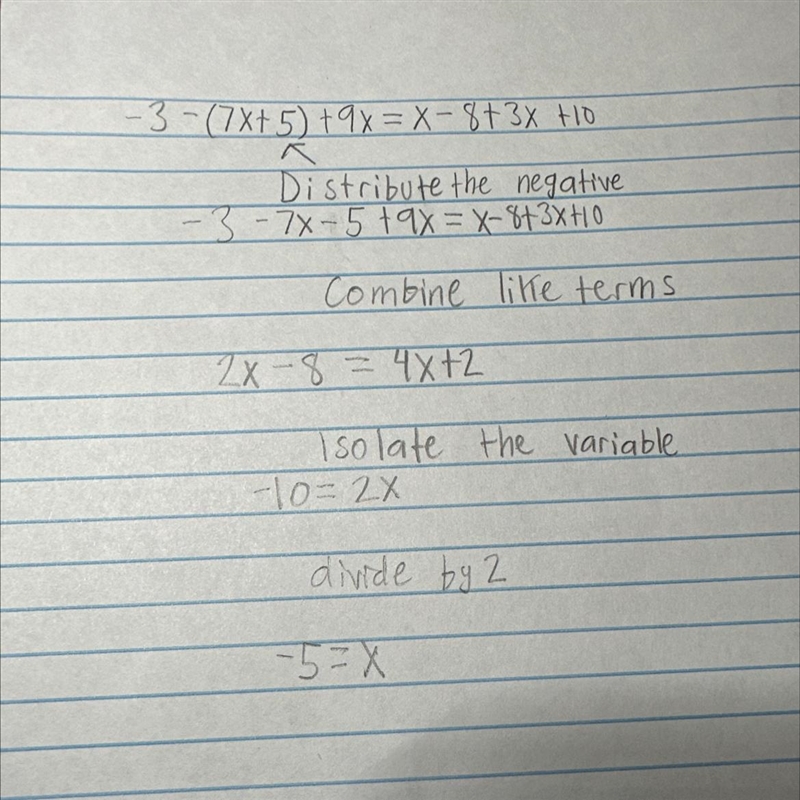 -3 -(7x+5)+9x=x-8+3x +10
Distribute the negative
-3 -7x-5 +9x=x-8+3x+10
Combine like terms
2x-8 = 4x+2
Isolate the variable
-10=2x
divide by 2
-5=x